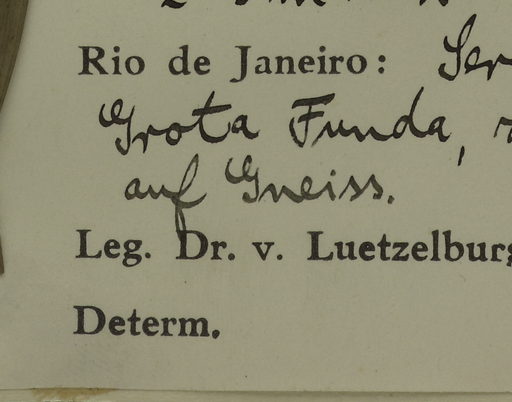 Rio de Janeiro: Ser
Grota Funda,
auf Gneiss.
Leg. Dr. v. Luetzelburg
Determ.